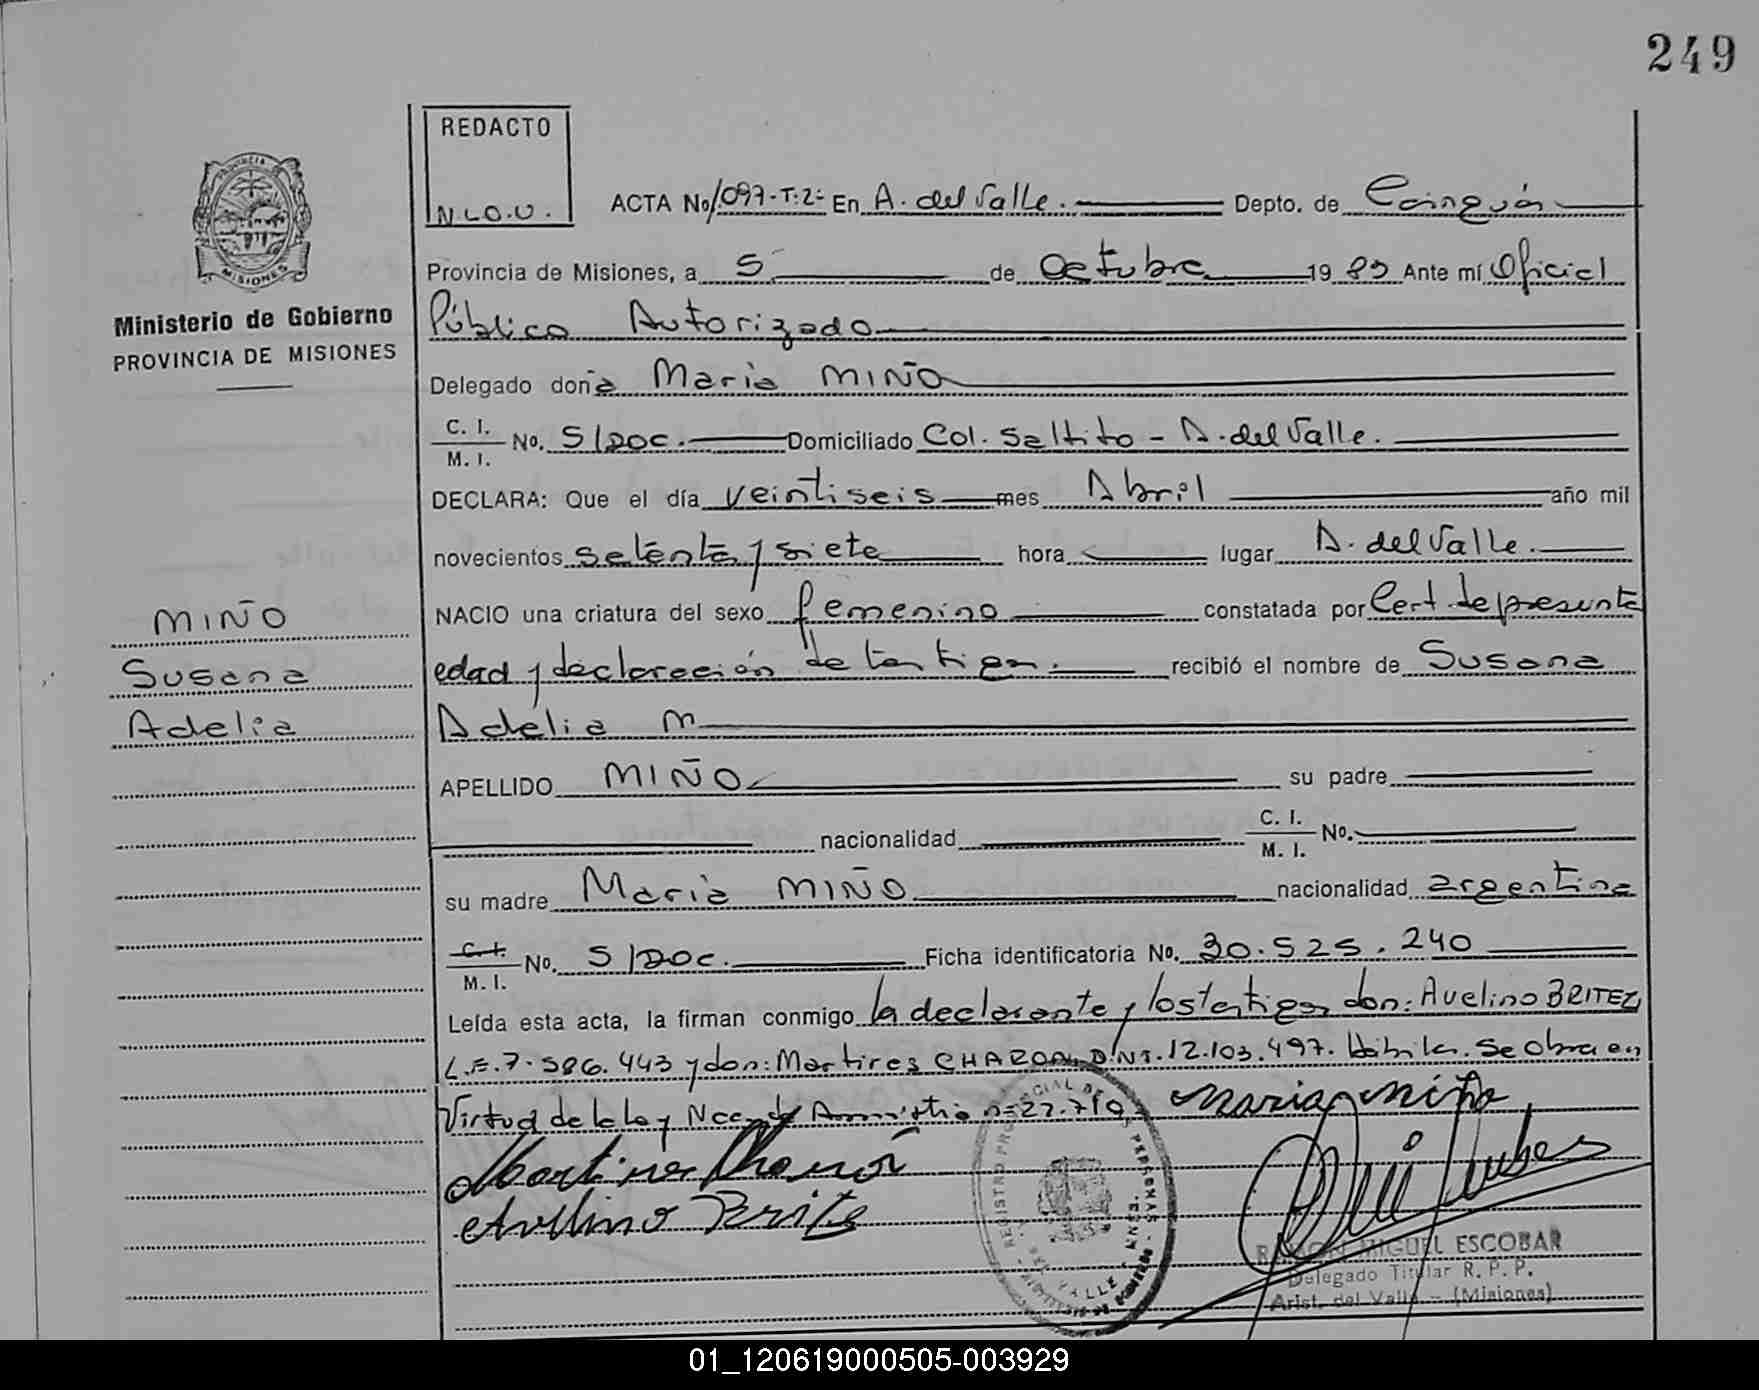 249
REDACTO
N.L.O.U.
ACTA No 1097-T:2- En A. del Valle. Depto. de Cainguás
PROVINCIA
MISIONES
Provincia de Misiones, a 5 de Octubre 1989 Ante mí Oficial
Público Autorizado
Ministerio de Gobierno
PROVINCIA DE MISIONES
Delegado doña Maria MIÑO
C. I.
M. I. No. S/DOC. Domiciliado Col. Saltito - A. del Valle.
DECLARA: Que el día veintiseis mes Abril año mil
novecientos setenta y siete hora lugar A. del Valle.
NACIO una criatura del sexo femenino constatada por Cert. de presunta
edad y declaración de testigos. recibió el nombre de Susana
Adelia
MIÑO
Susana
Adelia
APELLIDO MIÑO su padre
nacionalidad C. I.
M. I. No.
su madre Maria MIÑO nacionalidad argentina
C. I.
M. I. No. S/DOC. Ficha identificatoria No. 30.525.240
Leída esta acta, la firman conmigo la declarante y los testigos don: Avelino BRITEZ
L.E. 7.586.443 y don: Martires D.N.I. 12.103.497. Se obra en
Virtud de la Ley
Maria Miño
Avelino Brite
REGISTRO PROVINCIAL DE LAS PERSONAS
RAMON MIGUEL ESCOBAR
Delegado Titular R. P. P.
Arist. del Valle - (Misiones)
01_120619000505-003929